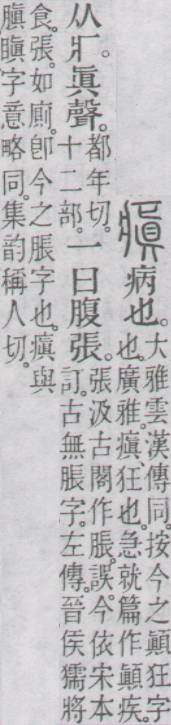 瘨病也。大雅雲漢傳同。按今之顚狂字也。廣雅。瘨、狂也。急就篇作顚疾。
从疒。眞聲。都年切。十二部。一曰腹張。張汲古閣作脹。誤。今依宋本訂。古無脹字。左傳。晉侯獳將
食。張。如廁。卽今之脹字也。瘨與䐜瞋字意略同。集韵稱人切。